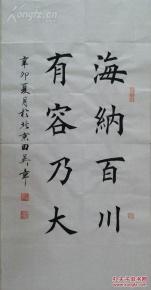 海納百川
有容乃大
辛卯夏月於北京田英章